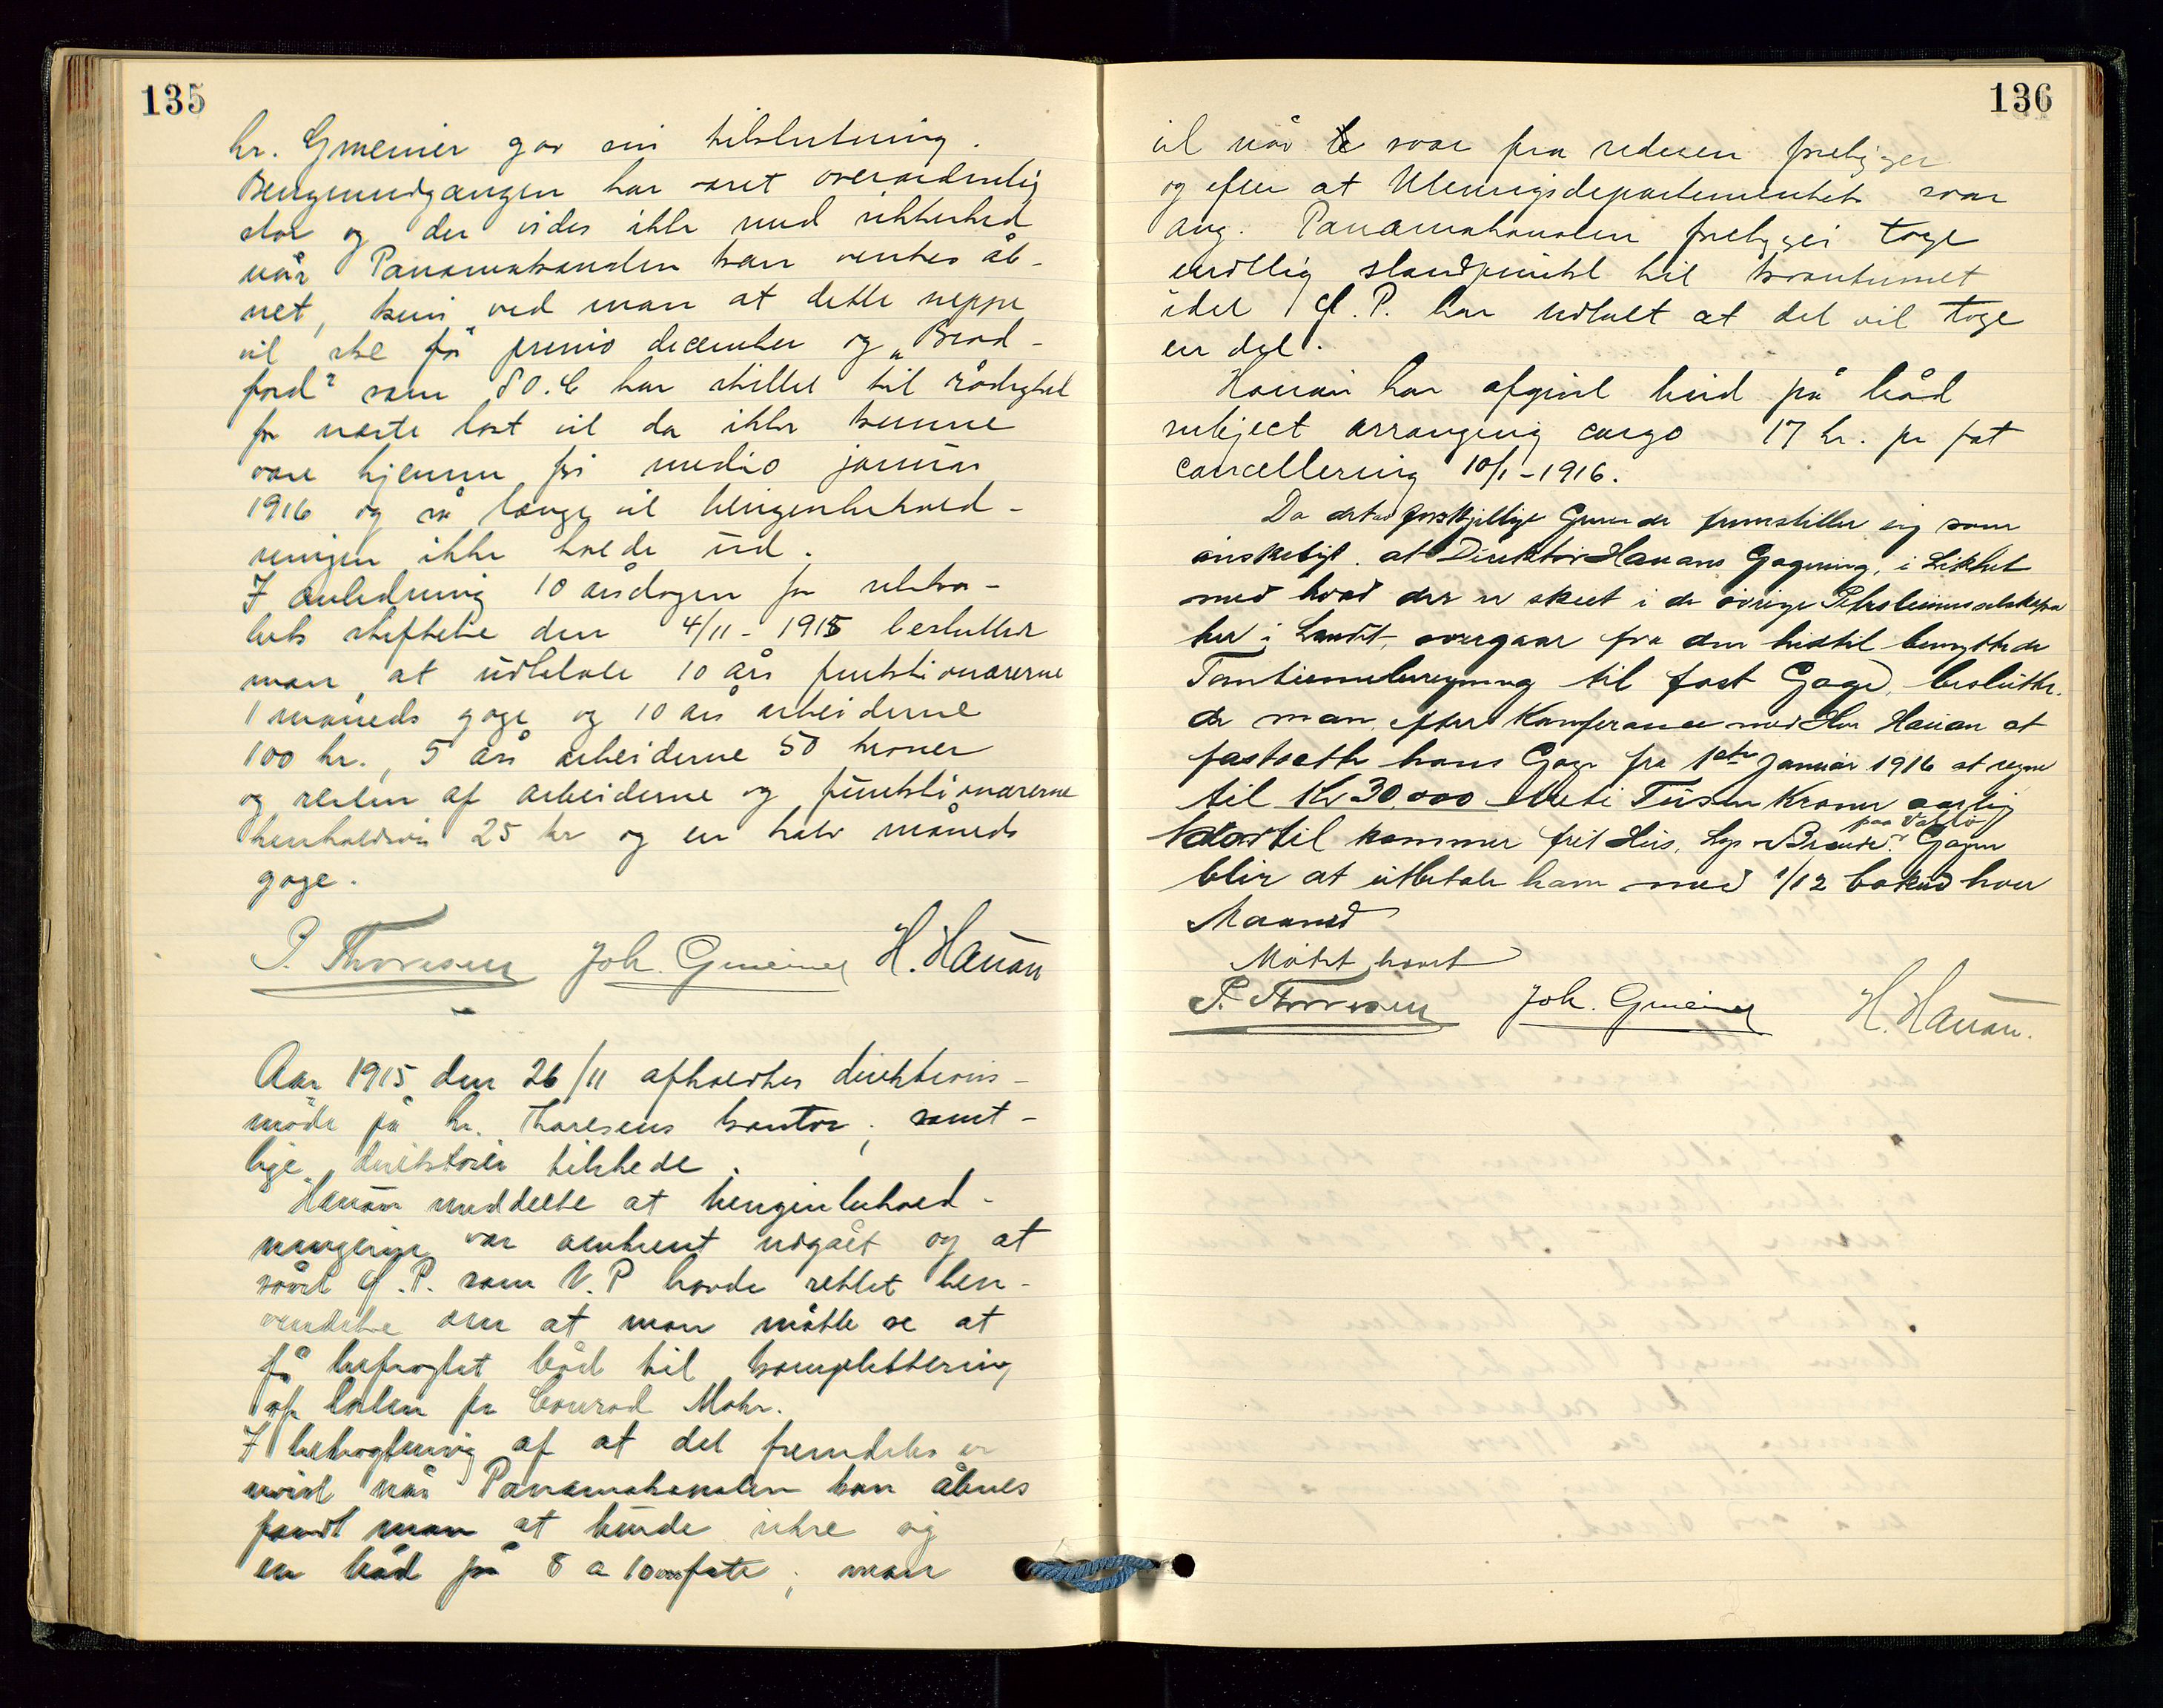 135
hr. Gmeiner gav sin tilslutning.
Benzinudgangen har været overordentlig
stor og der vides ikke med sikkerhed
når Panamakanalen kan ventes åb-
net, kun ved man at dette neppe
vil ske før primo december og „Brad-
ford" som D.O.C har stillet til rådighet
for næste last vil da ikke kunne
være hjemme før medio januar
1916 og så længe vil benzinbehold-
ningen ikke holde ud.
I anledning 10 årsdagen for selska-
bets stiftelse den 4/11-1915 besluttet
man, at udbetale 10 års funktionærerne
1 måneds gage og 10 års arbeiderne
100 kr., 5 års arbeiderne 50 kroner
og resten af arbeiderne og funktionærerne
henholdsvis 25 kr og en halv måneds
gage.
P. Thoresen Joh. Gmeiner H. Hauan
Aar 1915 den 26/11 afholdtes direktions-
møde på hr. Thoresens kontor; samt-
lige direktører tilstede.
Hauan meddelte at benzinbehold-
ningerne var omtrent udgået og at
såvel Ø.P. som V.P havde rettet hen-
vendelse om at man måtte se at
få befragtet båd til komplettering
af lasten pr Conrad Mohr.
I betragtning af at det fremdeles er
uvist når Panamakanalen kan åbnes
fandt man at burde sikre sig
en båd på 8 a 10000 fate; man
136
vil når svar fra rederen foreligger
og efter at Utenrigsdepartementets svar
ang. Panamakanalen foreligger tage
endelig standpunkt til kvantumet
idet Ø.P. har udtalt at det vil tage
en del.
Hauan har afgivet bud på båd
subject arranging cargo 17 kr. pr fat
cancellering 10/1-1916.
Da det av forskjellige Grunde fremstiller sig som
ønskeligt at Direktør Hauans Gagering, i Likhet
med hvad der er skeet i de øvrige Petroleumsselskaper
her i Landet, overgaar fra den hidtil benyttede
Tantiemeberegning til fast Gage, beslutte-
de man efter Konferance med Her Hauan at
fastsætte hans Gage fra 1ste Januar 1916 at regne
til Kr 30,000 Treti Tusen Kroner aarlig
paa Valløy
hvortil kommer frit Hus, Lys & Brænde. Gagen
blir at utbetale ham med 1/12 bakud hver
Maaned
Møtet hævet
P. Thoresen Joh. Gmeiner H. Hauan.